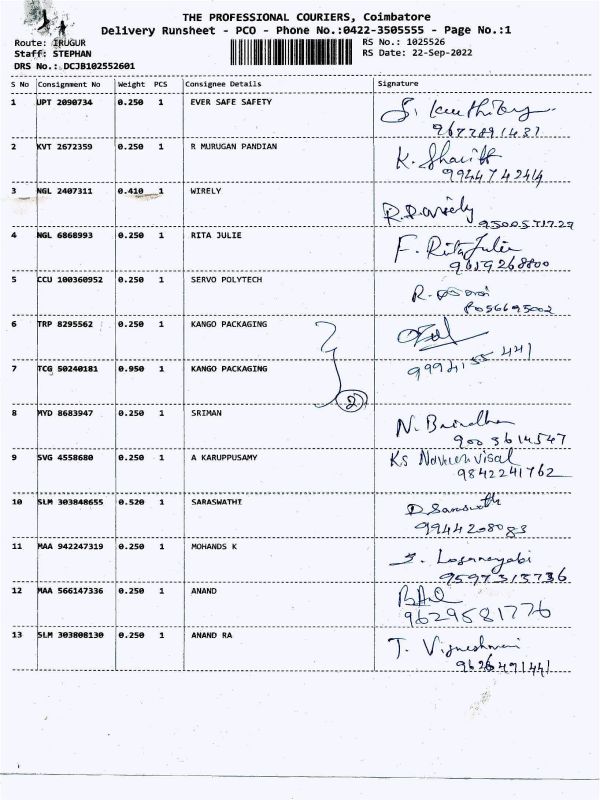 THE PROFESSIONAL COURIERS, Coimbatore
Delivery Runsheet - PCO - Phone No.:0422-3505555 - Page No.:1
Route: IRUGUR
RS No.: 1025526
Staff: STEPHAN
RS Date: 22-Sep-2022
DRS No.: DCJB102552601
S No Consignment No Weight PCS Consignee Details Signature
1 UPT 2090734 0.250 1 EVER SAFE SAFETY
2 KVT 2672359 0.250 1 R MURUGAN PANDIAN K. Shariff
9944742414
3 NGL 2407311 0.410 1 WIRELY
4 NGL 6868993 0.250 1 RITA JULIE F. Rita Julie
9659268800
5 CCU 100360952 0.250 1 SERVO POLYTECH
8056695002
6 TRP 8295562 0.250 1 KANGO PACKAGING
7 TCG 50240181 0.950 1 KANGO PACKAGING 9994155441
2
8 MYD 8683947 0.250 1 SRIMAN
9003614547
9 SVG 4558680 0.250 1 A KARUPPUSAMY Ks Naveen Visal
9842241762
10 SLM 303848655 0.520 1 SARASWATHI
9944208083
11 MAA 942247319 0.250 1 MOHANDS K
9597313736
12 MAA 566147336 0.250 1 ANAND
9629581776
13 SLM 303808130 0.250 1 ANAND RA T. Vigneshwari
9626491441